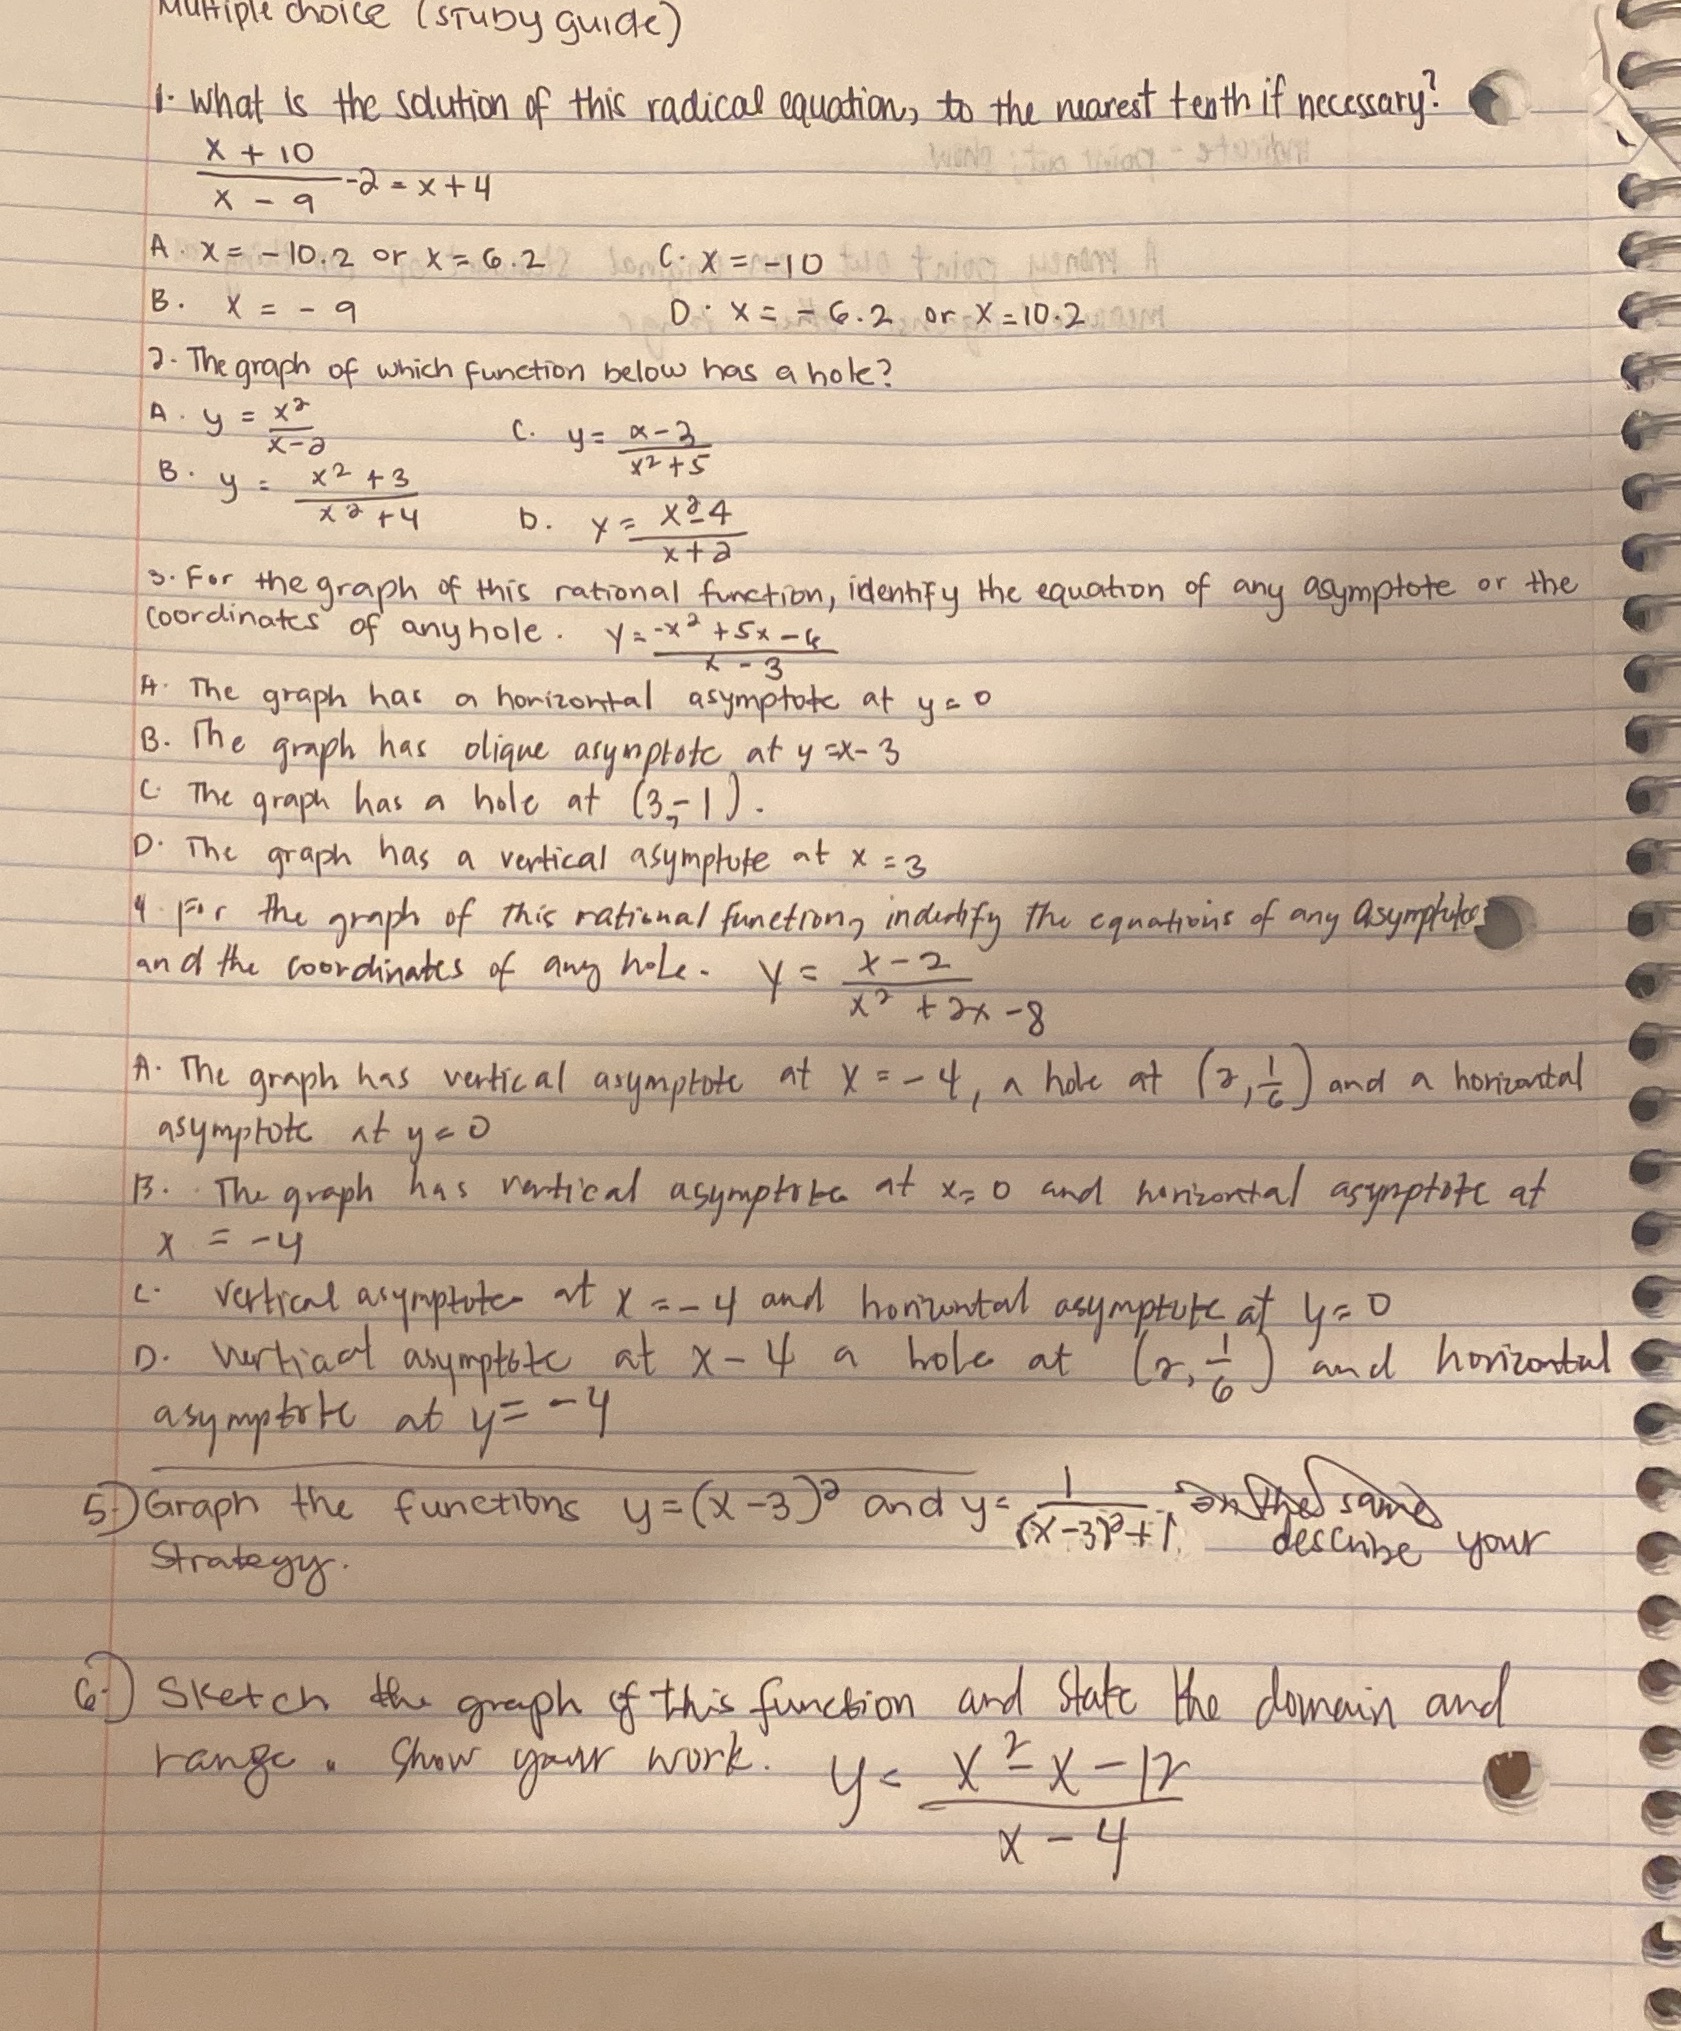 Multiple choice (study guide)
1. What is the solution of this radical equation, to the nearest tenth if necessary?
x + 10
x - 9
-2 = x + 4
A. x = -10.2 or x = 6.2
C. x = -10
B. x = - 9
D. x = - 6.2 or x = 10.2
2. The graph of which function below has a hole?
A. y = x²
x-2
C. y = x-3
x²+5
B. y = x² + 3
x² + 4
D. y = x²-4
x+2
3. For the graph of this rational function, identify the equation of any asymptote or the
coordinates of any hole. y = -x² + 5x - 6
x - 3
A. The graph has a horizontal asymptote at y = 0
B. The graph has olique asymptote at y = x- 3
C. The graph has a hole at (3,-1).
D. The graph has a vertical asymptote at x = 3
4. For the graph of this rational function, indentify the equations of any asymptotes
and the coordinates of any hole. y = x-2
x² + 2x - 8
A. The graph has vertical asymptote at x = -4, a hole at (2, 1/6) and a horizontal
asymptote at y = 0
B. The graph has vertical asymptote at x = 0 and horizontal asymptote at
x = -4
C. vertical asymptote at x = -4 and horizontal asymptote at y = 0
D. asymptote at x - 4 a hole at (2, 1/6) and horizontal
asymptote at y = -4
5.) Graph the functions y = (x-3)² and y = 1/(x-3)²+1 on the same
describe your
strategy.
6.) Sketch the graph of this function and state the domain and
range. Show your work. y = x² - x - 12
x - 4